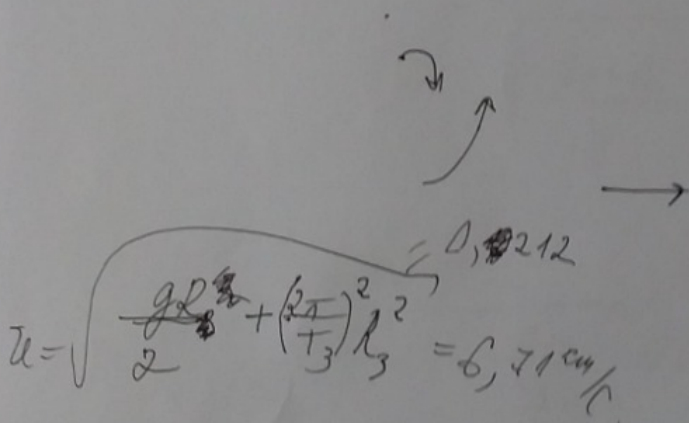 = 0,212
u = √(gR/2 + (2π/T₃)² R₃²) = 6,71 см/с